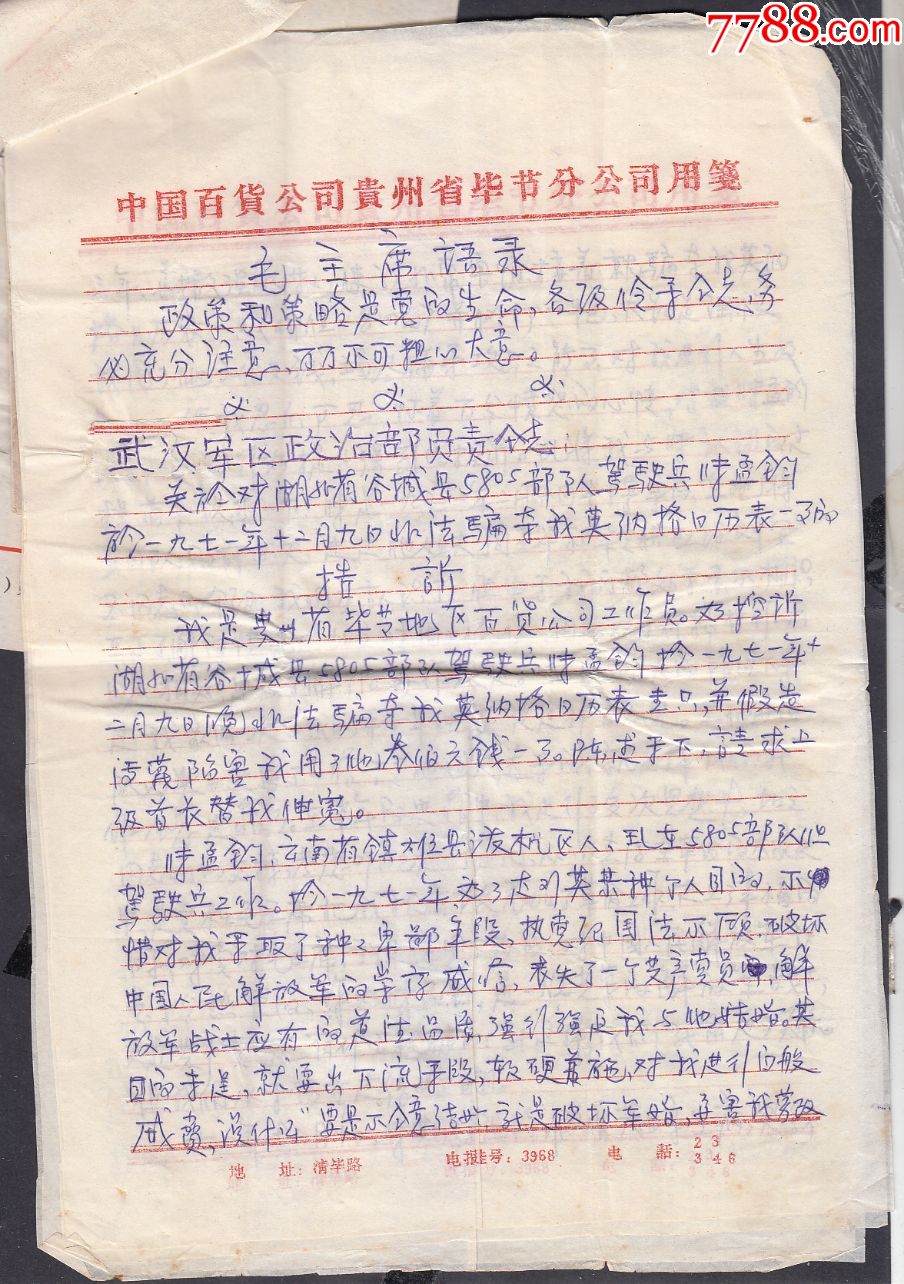 7788.com
中国百貨公司貴州省毕节分公司用箋
毛主席语录
政策和策略是党的生命，各级领导同志，务
必充分注意，万万不可粗心大意。
武汉军区政治部负责同志：
关於对湖北省谷城县5805部队驾驶兵 孟钧
於一九七一年十二月九日非法骗夺我英纳格日历表一事的
控 訴
我是贵州省毕节地区百货公司工作员。为控訴
湖北省谷城县5805部队驾驶兵 孟钧於一九七一年十
二月九日晚非法骗夺我英纳格日历表壹只，并假造
陷害我用了他叁佰元钱一事。陈述于下，請求上
级首长替我伸冤。
孟钧，云南省镇雄县泼机区人，现在5805部队
驾驶兵工作。於一九七一年，为了达到其某种个人目的，不
惜对我采取了种々卑鄙手段，执党纪国法不顾，破坏
中国人民解放军的崇高威信，丧失了一个共产党员，解
放军战士应有的道法品质，强行强迫我与他结婚。其
目的未逞，就耍出下流手段，软硬兼施，对我进行百般
威，说什么“要是不同意结婚就是破坏军婚，要害我劳改
地 址：清毕路
电报挂号：3968
电 話：23
346